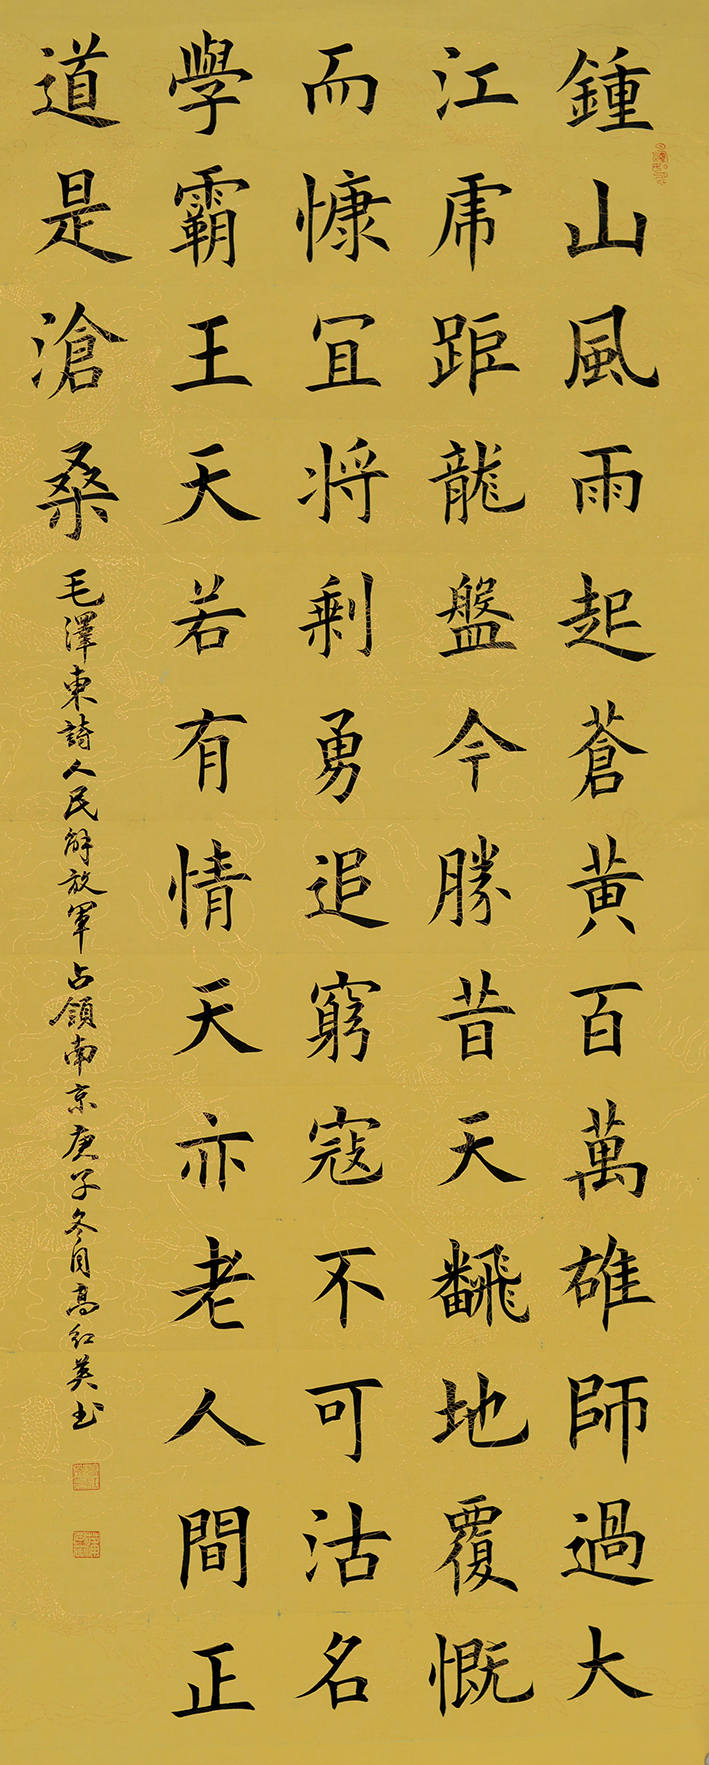 鍾山風雨起蒼黃百萬雄師過大
江虎距龍盤今勝昔天飜地覆慨
而慷冝将剩勇追窮寇不可沽名
學霸王天若有情天亦老人間正
道是滄桑
毛澤東詩人民解放軍占領南京庚子冬月高红英书